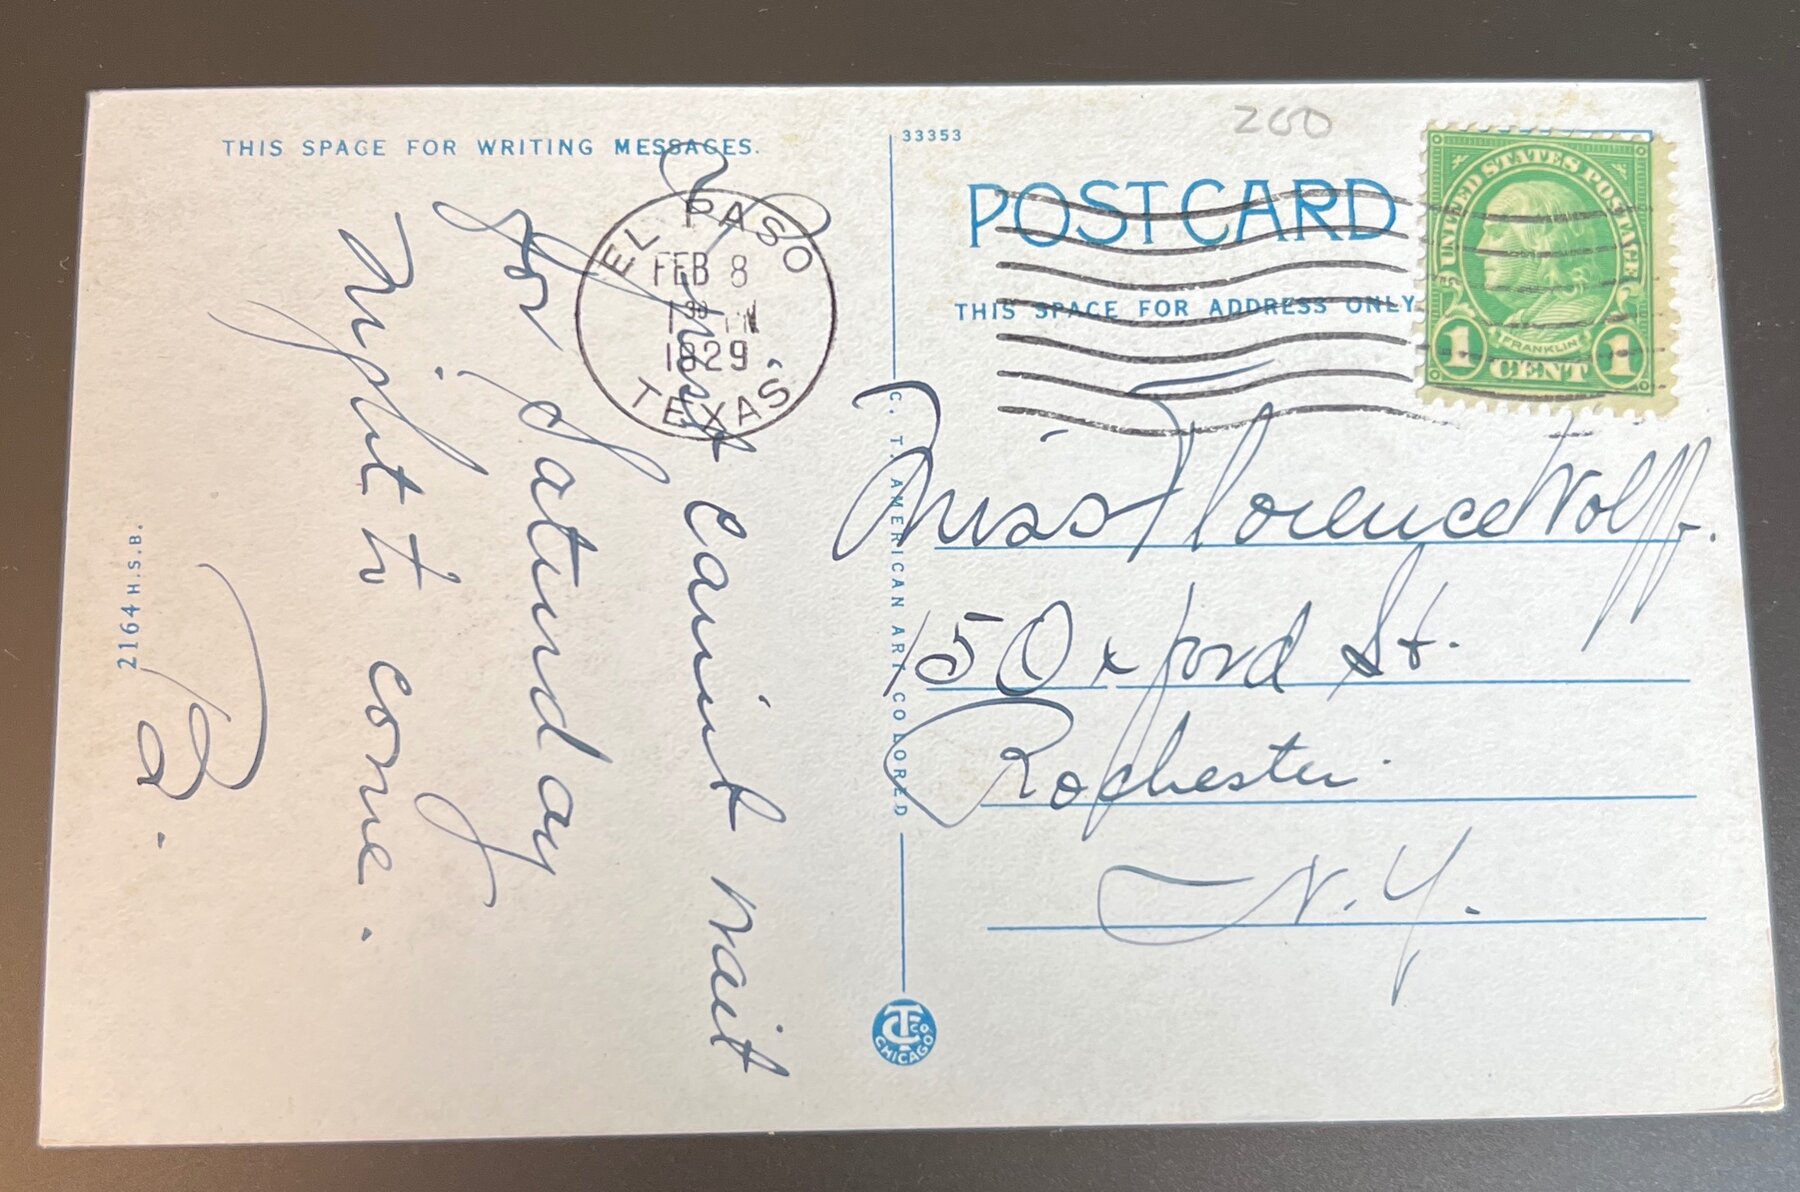 THIS SPACE FOR WRITING MESSAGES.
I just can't wait
for Saturday
night to come.
B.
2164 H.S.B.
EL PASO
1
FEB 8
1929
TEXAS
33353
200
POST CARD
THIS SPACE FOR ADDRESS ONLY
UNITED STATES POSTAGE
FRANKLIN
1 CENT 1
C. T. AMERICAN ART COLORED
Miss Florence Wolff.
15 Oxford St.
Rochester
N.Y.
CT CO.
CHICAGO